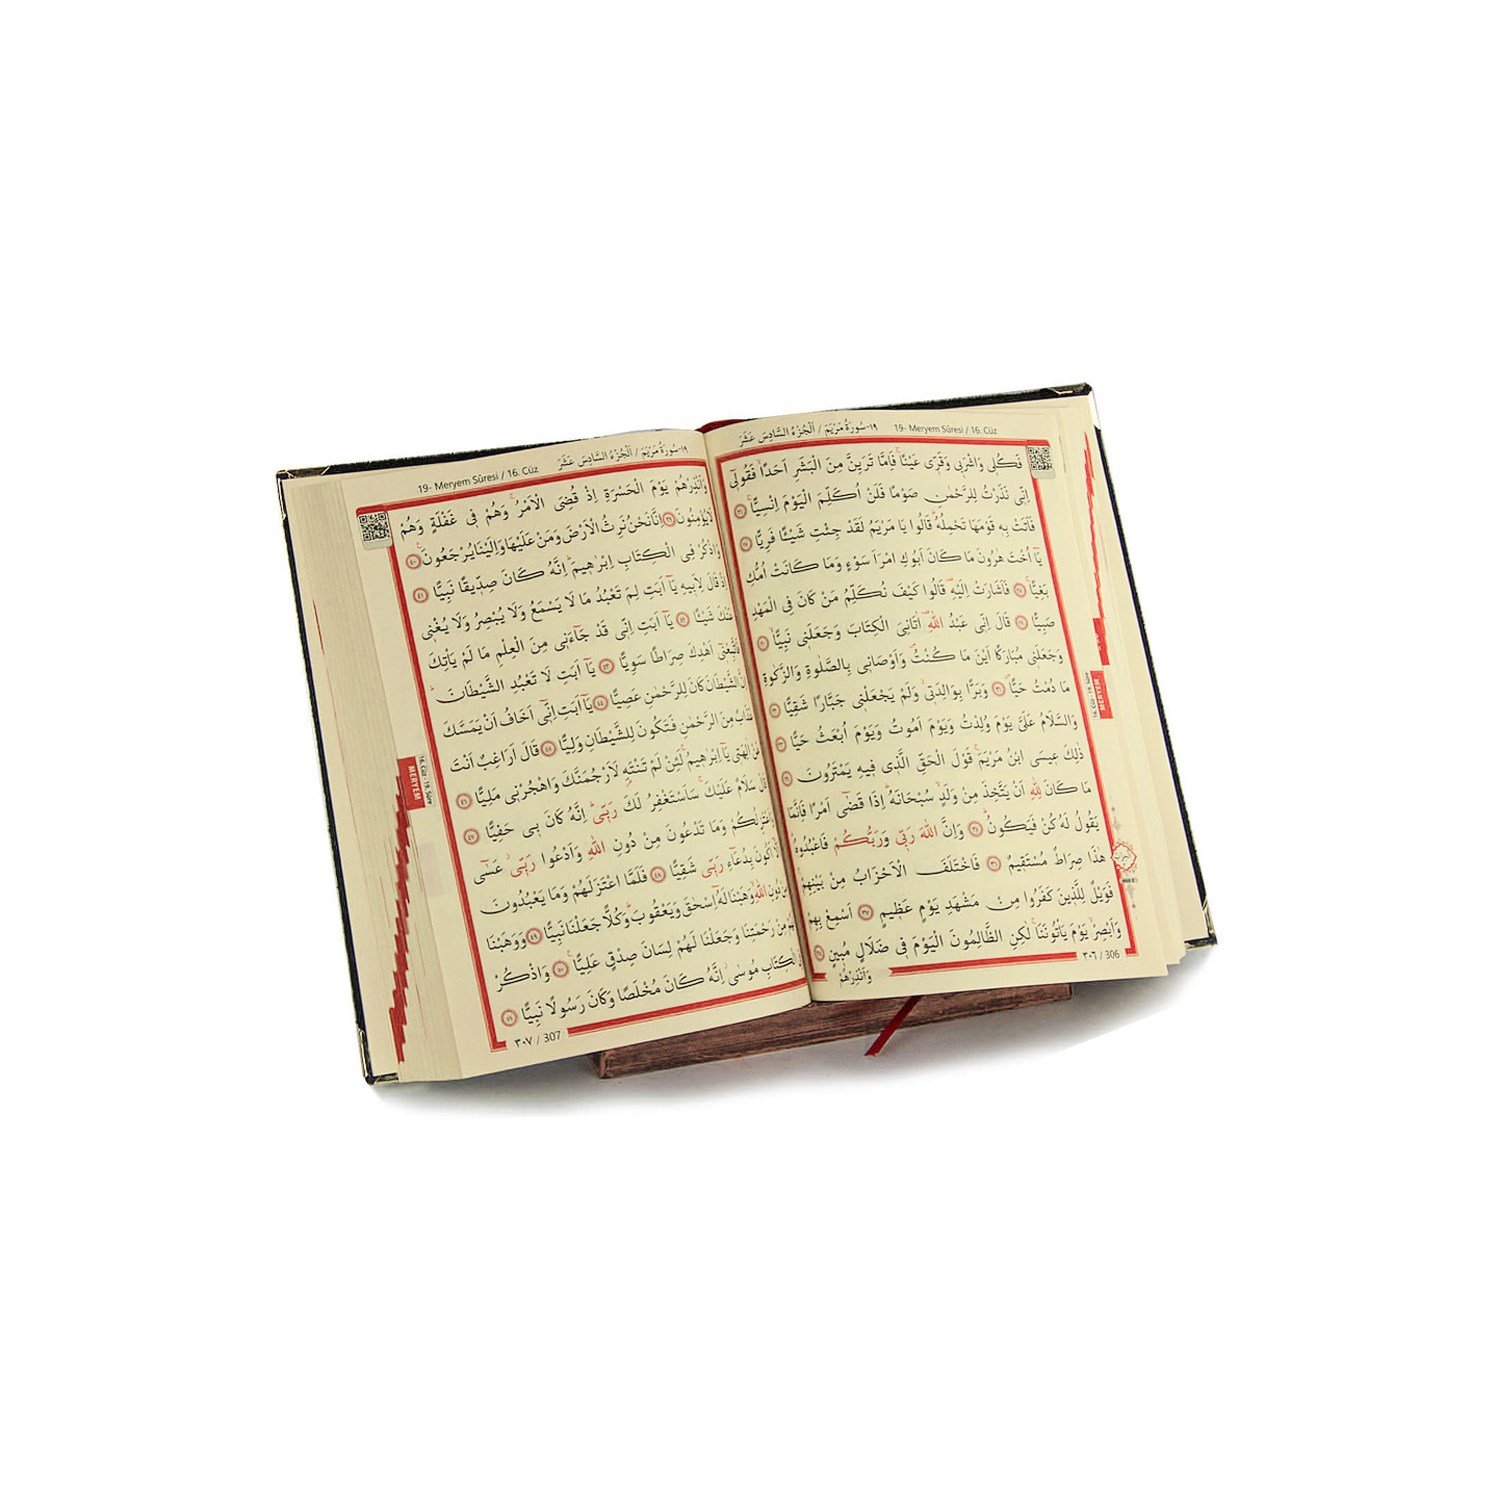 ١٩-سُورَةُ مَرْيَمَ / اَلْجُزْءُ السَّادِسَ عَشَرَ 19- Meryem Sûresi / 16. Cüz
فَكُلٖى وَاشْرَبٖى وَقَرّٖى عَيْنًاۚ فَاِمَّا تَرَيِنَّ مِنَ الْبَشَرِ اَحَدًاۙ فَقُولٖٓى
اِنّٖى نَذَرْتُ لِلرَّحْمٰنِ صَوْمًا فَلَنْ اُكَلِّمَ الْيَوْمَ اِنْسِيًّاۚ ٢٦
فَاَتَتْ بِهٖ قَوْمَهَا تَحْمِلُهُۜ قَالُوا يَا مَرْيَمُ لَقَدْ جِئْتِ شَيْـًٔا فَرِيًّا ٢٧
يَٓا اُخْتَ هٰرُونَ مَا كَانَ اَبُوكِ امْرَاَ سَوْءٍ وَمَا كَانَتْ اُمُّكِ
بَغِيًّاۚ ٢٨ فَاَشَارَتْ اِلَيْهِۜ قَالُوا كَيْفَ نُكَلِّمُ مَنْ كَانَ فِى الْمَهْدِ
صَبِيًّا ٢٩ قَالَ اِنّٖى عَبْدُ اللّٰهِۜ اٰتَانِىَ الْكِتَابَ وَجَعَلَنٖى نَبِيًّاۙ ٣٠
وَجَعَلَنٖى مُبَارَكًا اَيْنَ مَا كُنْتُۖ وَاَوْصَانٖى بِالصَّلٰوةِ وَالزَّكٰوةِ
مَا دُمْتُ حَيًّاۖ ٣١ وَبَرًّا بِوَالِدَتٖىۘ وَلَمْ يَجْعَلْنٖى جَبَّارًا شَقِيًّا ٣٢
وَالسَّلَامُ عَلَىَّ يَوْمَ وُلِدْتُ وَيَوْمَ اَمُوتُ وَيَوْمَ اُبْعَثُ حَيًّا ٣٣
ذٰلِكَ عٖيسَى ابْنُ مَرْيَمَۚ قَوْلَ الْحَقِّ الَّذٖى فٖيهِ يَمْتَرُونَ ٣٤
مَا كَانَ لِلّٰهِ اَنْ يَتَّخِذَ مِنْ وَلَدٍۙ سُبْحَانَهُۜ اِذَا قَضٰٓى اَمْرًا فَاِنَّمَا
يَقُولُ لَهُ كُنْ فَيَكُونُۜ ٣٥ وَاِنَّ اللّٰهَ رَبّٖى وَرَبُّكُمْ فَاعْبُدُوهُۜ
هٰذَا صِرَاطٌ مُسْتَقٖيمٌ ٣٦ فَاخْتَلَفَ الْاَحْزَابُ مِنْ بَيْنِهِمْۚ
فَوَيْلٌ لِلَّذٖينَ كَفَرُوا مِنْ مَشْهَدِ يَوْمٍ عَظٖيمٍ ٣٧ اَسْمِعْ بِهِمْ
وَاَبْصِرْۙ يَوْمَ يَأْتُونَنَا لٰكِنِ الظَّالِمُونَ الْيَوْمَ فٖى ضَلَالٍ مُبٖينٍ ٣٨
وَاَنْذِرْهُمْ
٣٠٦ / 306
16. Cüz - 19. Sûre
MERYEM
١٩-سُورَةُ مَرْيَمَ / اَلْجُزْءُ السَّادِسَ عَشَرَ 19- Meryem Sûresi / 16. Cüz
وَاَنْذِرْهُمْ يَوْمَ الْحَسْرَةِ اِذْ قُضِىَ الْاَمْرُۢ وَهُمْ فٖى غَفْلَةٍ وَهُمْ
لَا يُؤْمِنُونَ ٣٩ اِنَّا نَحْنُ نَرِثُ الْاَرْضَ وَمَنْ عَلَيْهَا وَاِلَيْنَا يُرْجَعُونَ ٤٠
وَاذْكُرْ فِى الْكِتَابِ اِبْرٰهٖيمَۜ اِنَّهُ كَانَ صِدّٖيقًا نَبِيًّا ٤١
اِذْ قَالَ لِاَبٖيهِ يَٓا اَبَتِ لِمَ تَعْبُدُ مَا لَا يَسْمَعُ وَلَا يُبْصِرُ وَلَا يُغْنٖى
عَنْكَ شَيْـًٔا ٤٢ يَٓا اَبَتِ اِنّٖى قَدْ جَٓاءَنٖى مِنَ الْعِلْمِ مَا لَمْ يَأْتِكَ
فَاتَّبِعْنٖٓى اَهْدِكَ صِرَاطًا سَوِيًّا ٤٣ يَٓا اَبَتِ لَا تَعْبُدِ الشَّيْطَانَۜ
اِنَّ الشَّيْطَانَ كَانَ لِلرَّحْمٰنِ عَصِيًّا ٤٤ يَٓا اَبَتِ اِنّٖٓى اَخَافُ اَنْ يَمَسَّكَ
عَذَابٌ مِنَ الرَّحْمٰنِ فَتَكُونَ لِلشَّيْطَانِ وَلِيًّا ٤٥ قَالَ اَرَاغِبٌ اَنْتَ
عَنْ اٰلِهَتٖى يَٓا اِبْرٰهٖيمُۚ لَئِنْ لَمْ تَنْتَهِ لَاَرْجُمَنَّكَ وَاهْجُرْنٖى مَلِيًّا ٤٦
قَالَ سَلَامٌ عَلَيْكَۚ سَاَسْتَغْفِرُ لَكَ رَبّٖىۜ اِنَّهُ كَانَ بٖى حَفِيًّا ٤٧
وَاَعْتَزِلُكُمْ وَمَا تَدْعُونَ مِنْ دُونِ اللّٰهِ وَاَدْعُوا رَبّٖىۘ عَسٰٓى
اَلَّٓا اَكُونَ بِدُعَٓاءِ رَبّٖى شَقِيًّا ٤٨ فَلَمَّا اعْتَزَلَهُمْ وَمَا يَعْبُدُونَ
مِنْ دُونِ اللّٰهِۙ وَهَبْنَا لَهُٓ اِسْحٰقَ وَيَعْقُوبَۜ وَكُلًّا جَعَلْنَا نَبِيًّا ٤٩ وَوَهَبْنَا
لَهُمْ مِنْ رَحْمَتِنَا وَجَعَلْنَا لَهُمْ لِسَانَ صِدْقٍ عَلِيًّا۟ ٥٠ وَاذْكُرْ
فِى الْكِتَابِ مُوسٰىۘ اِنَّهُ كَانَ مُخْلَصًا وَكَانَ رَسُولًا نَبِيًّا ٥١
٣٠٧ / 307
16. Cüz - 19. Sûre
MERYEM